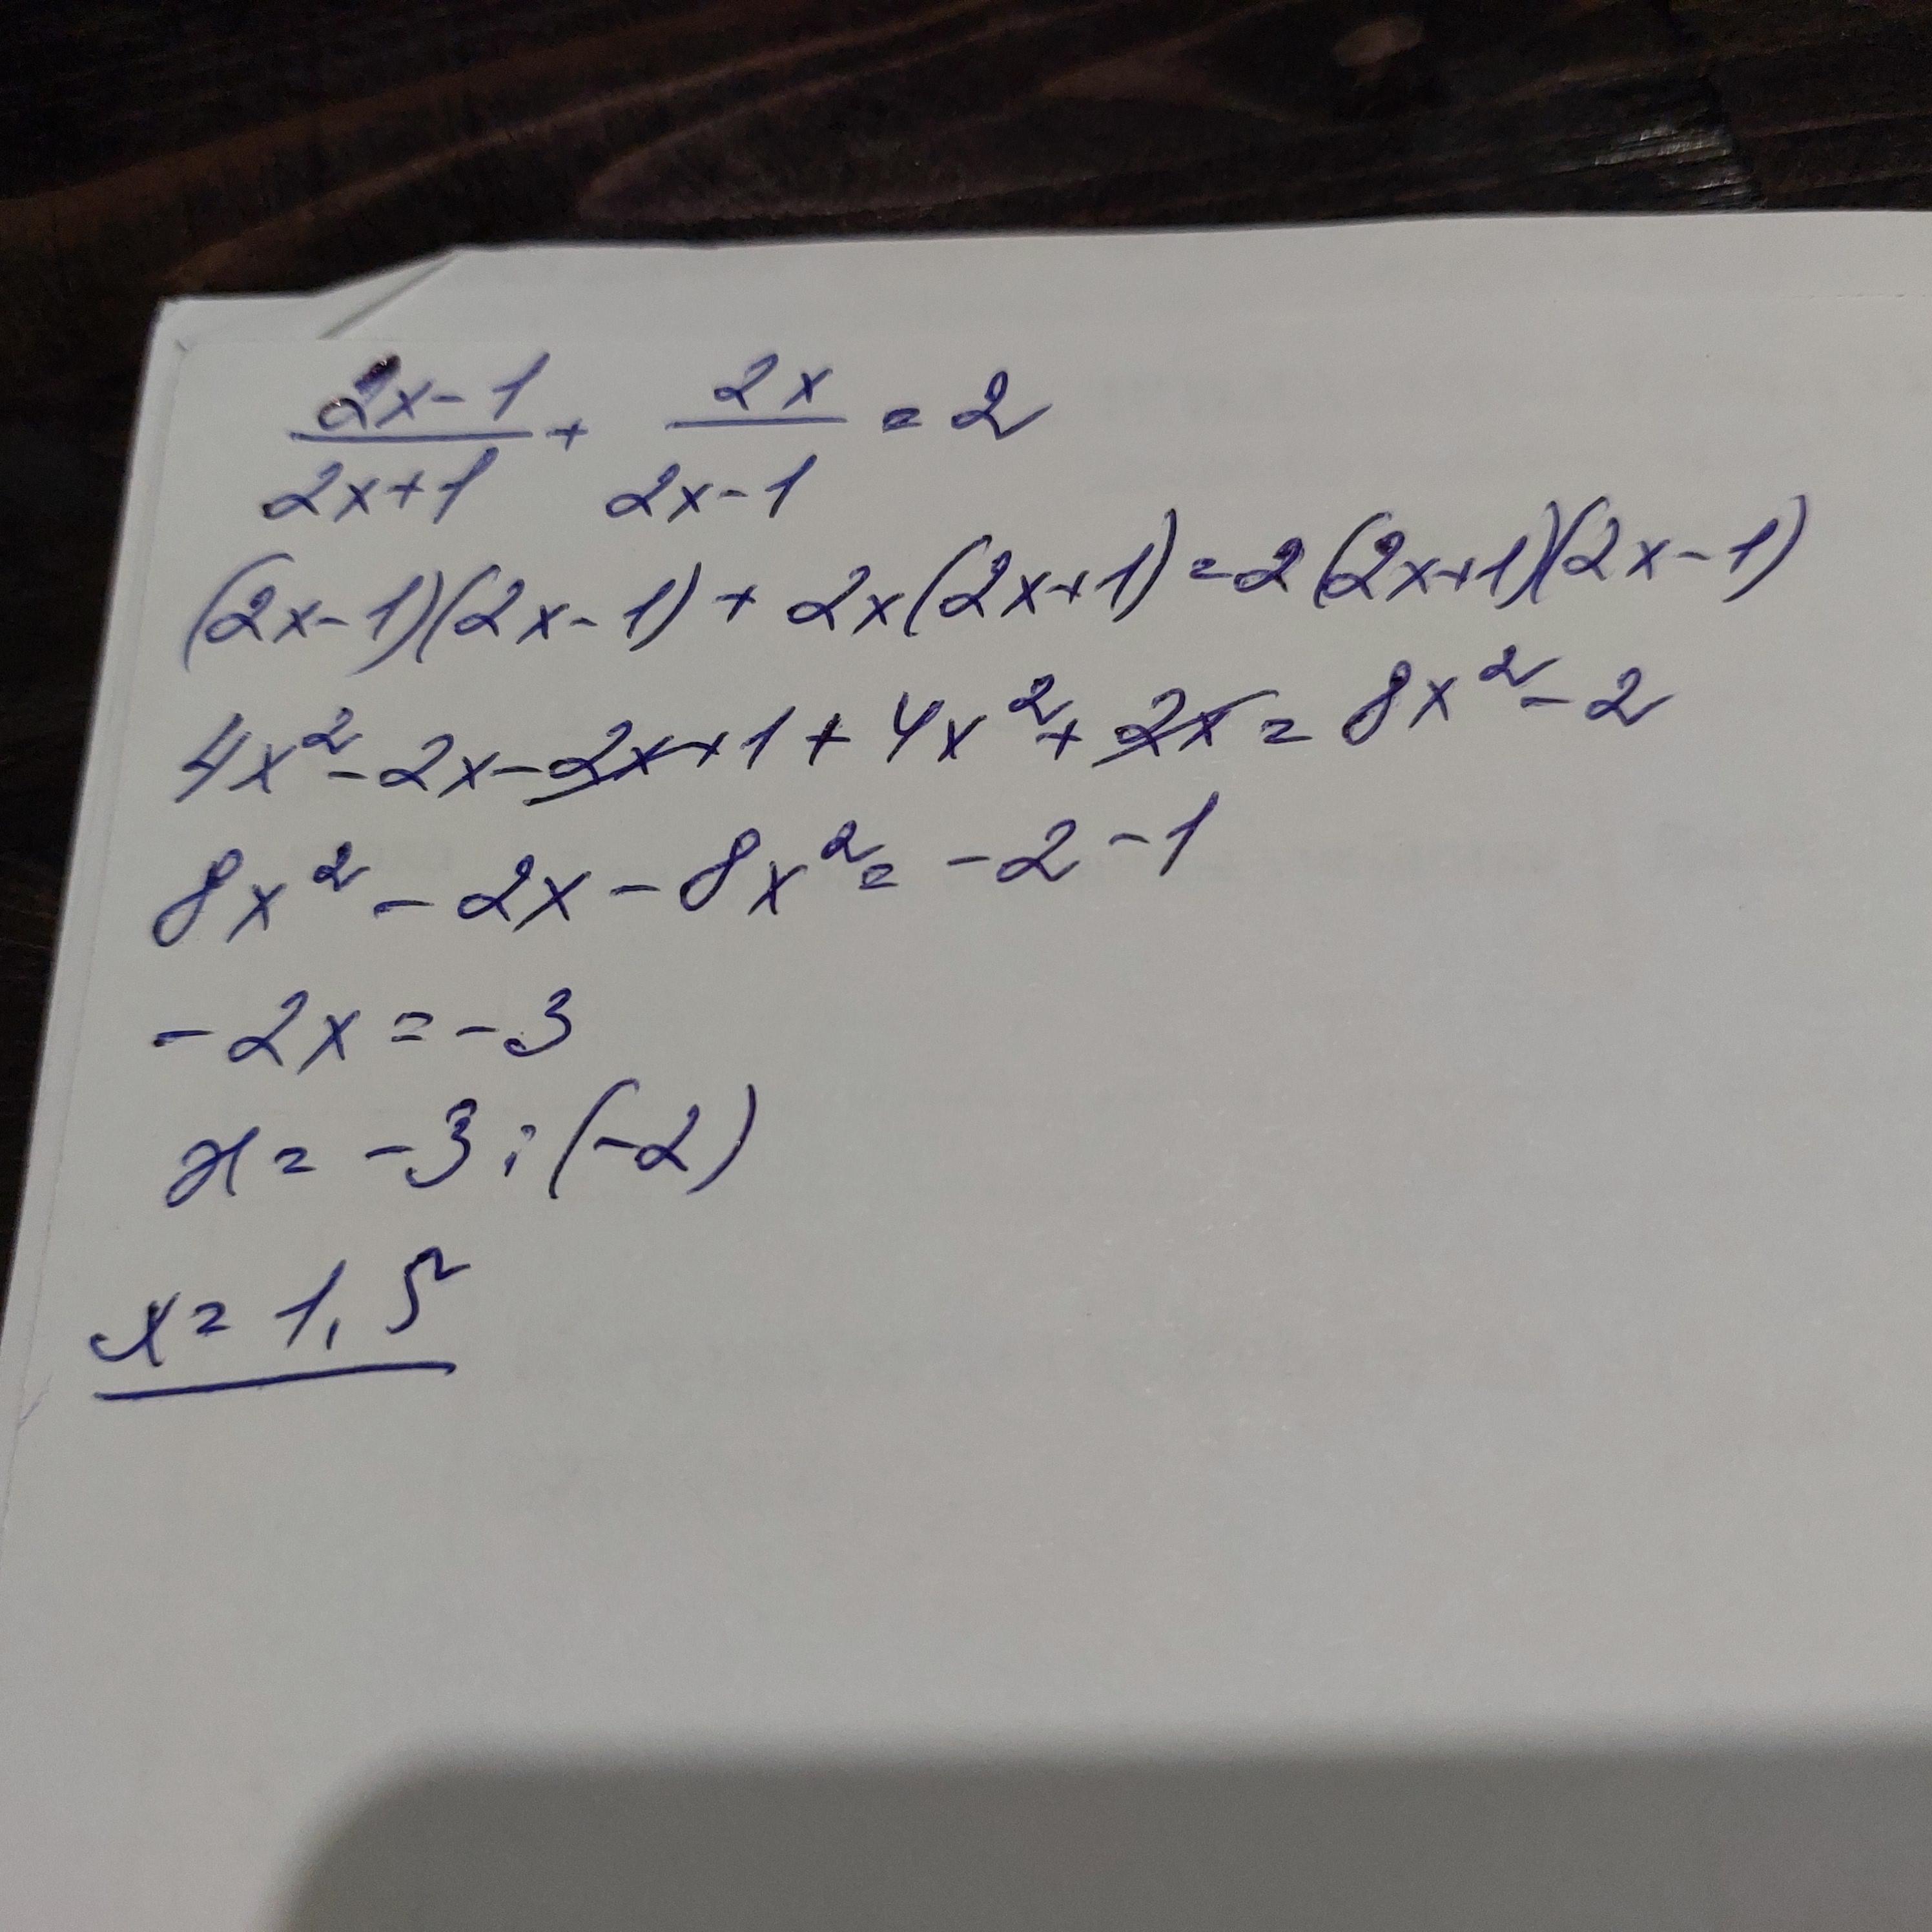 (2x-1)/(2x+1) + 2x/(2x-1) = 2
(2x-1)(2x-1) + 2x(2x+1) = 2(2x+1)(2x-1)
4x² - 2x - 2x + 1 + 4x² + 2x = 8x² - 2
8x² - 2x - 8x² = -2 - 1
-2x = -3
x = -3 : (-2)
x = 1,5